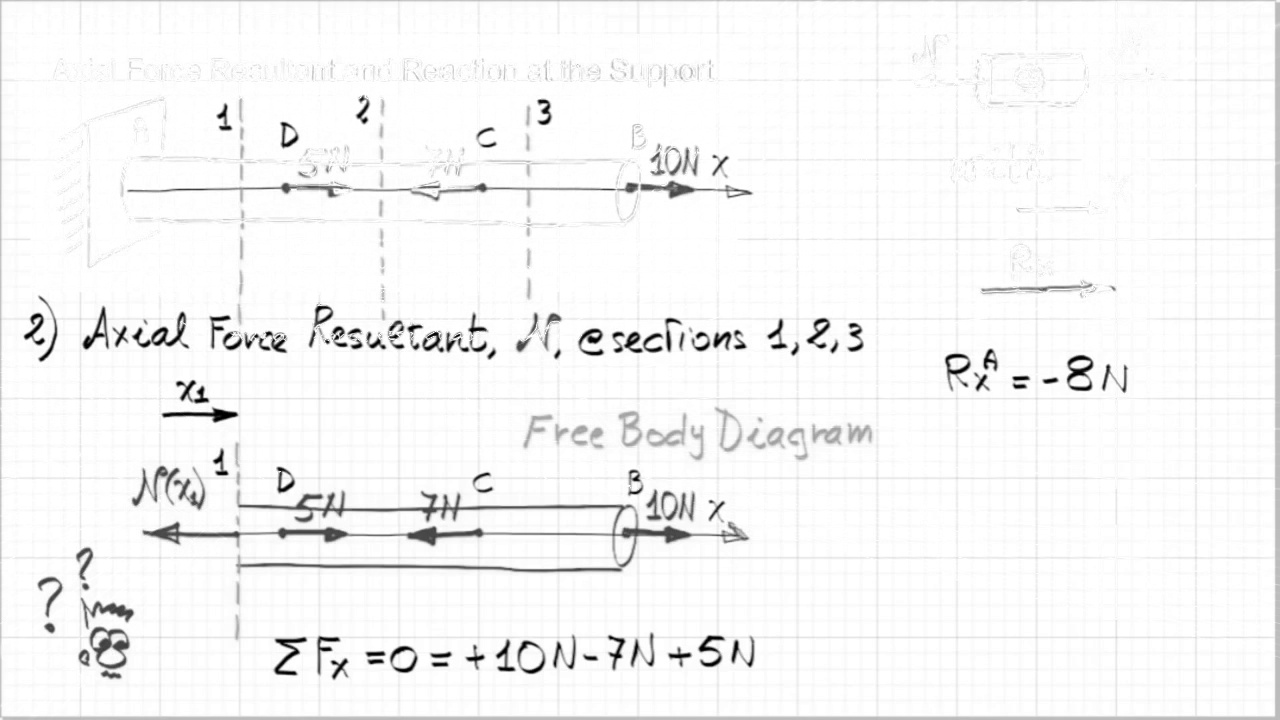 Axial Force Resultant and Reaction at the Support
1 2 3
A D C B
5N 7N 10N x
2) Axial Force Resultant, N, @sections 1,2,3
RxA = -8N
x1
Free Body Diagram
1 D C B
N(x1) 5N 7N 10N x
? ?
ΣFx = 0 = +10N-7N+5N